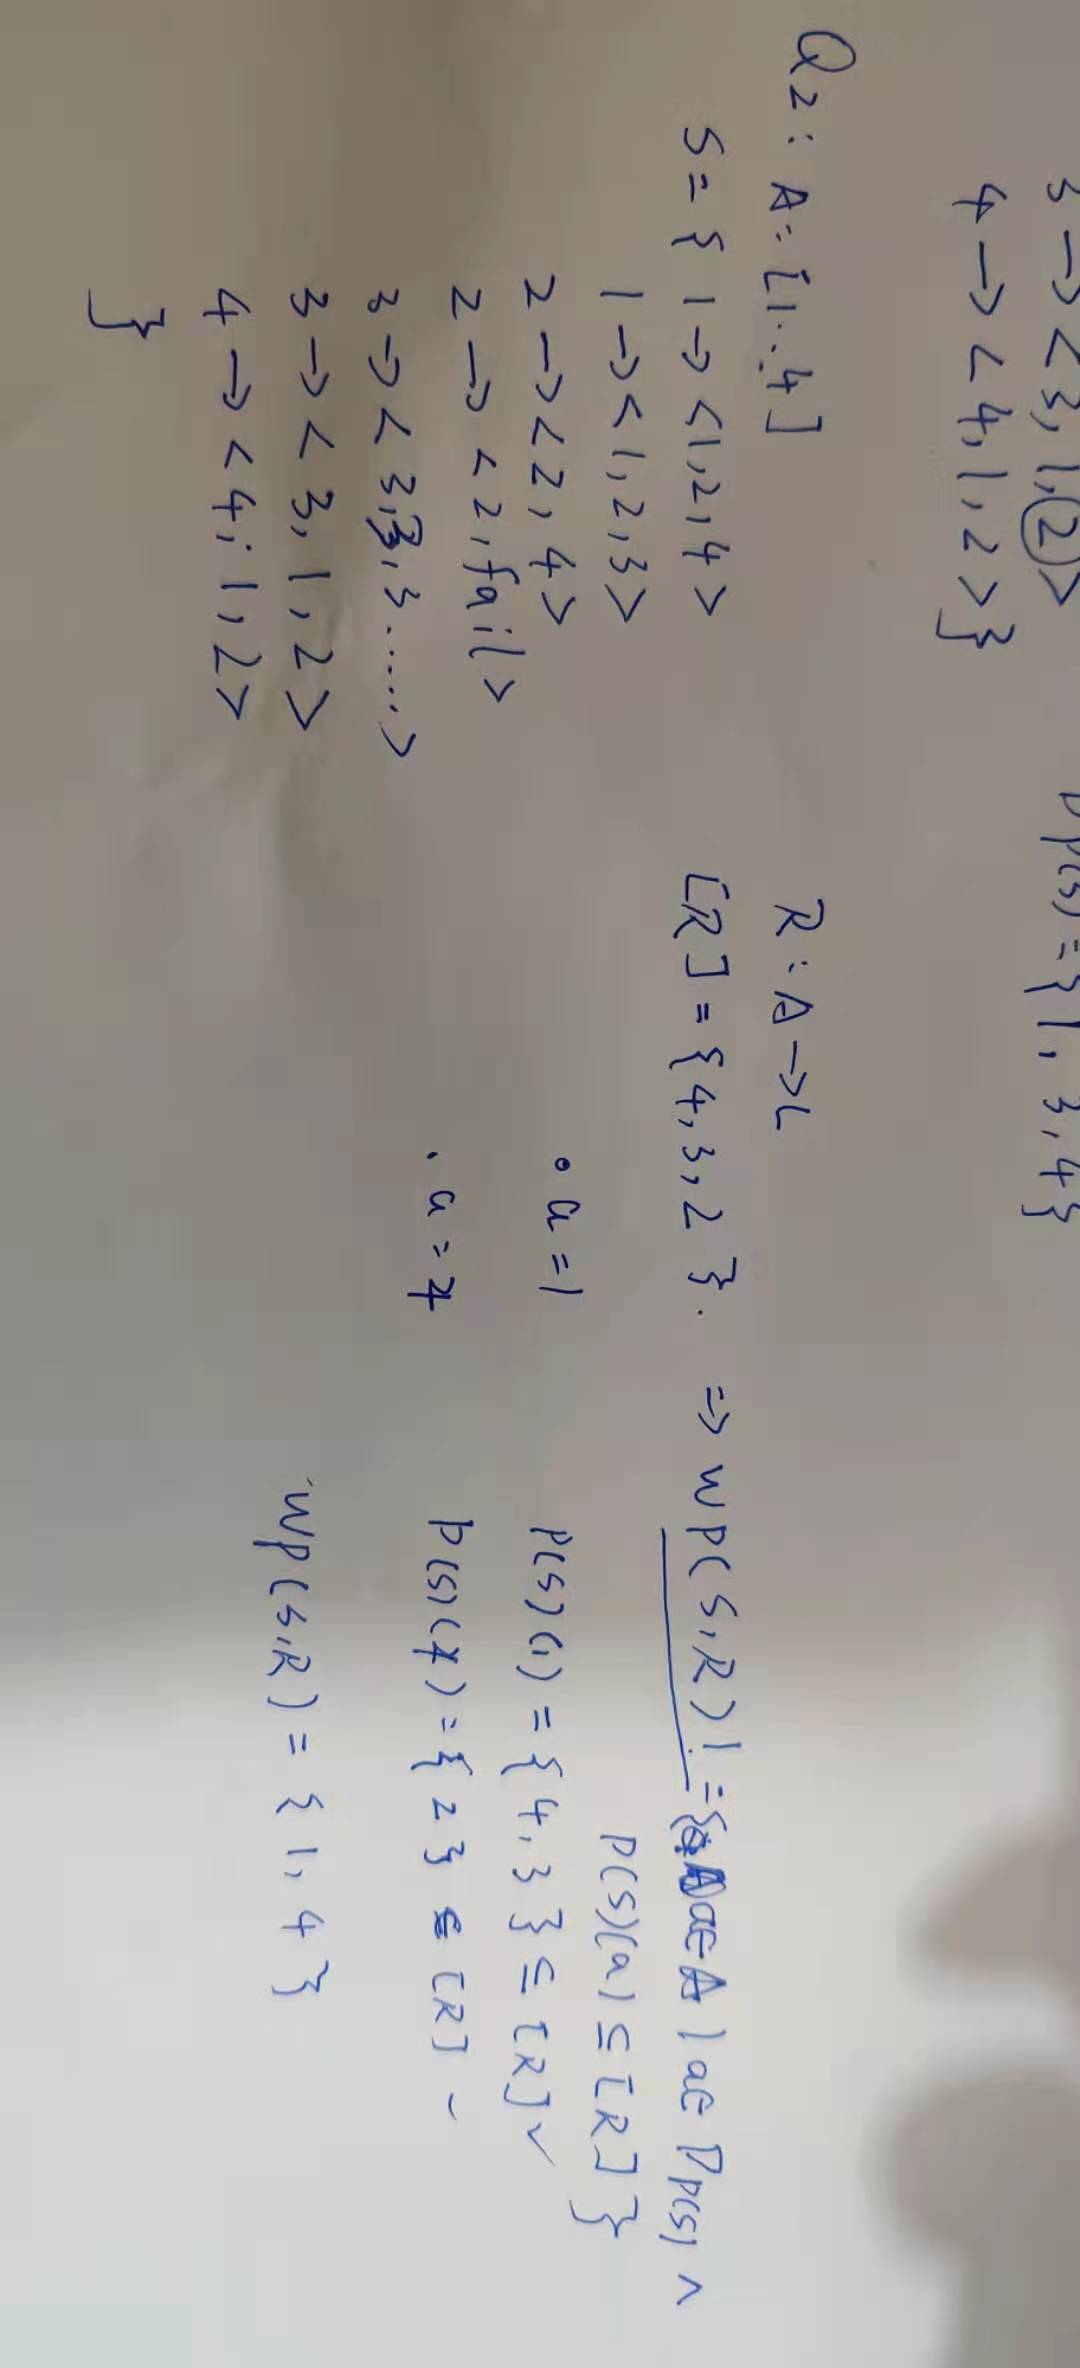 3 → <3, 1, 2>
4 → <4, 1, 2>}
p(s) = {1, 3, 4}
Q2: A = [1..4]
S = { 1 → <1, 2, 4>
1 → <1, 2, 3>
2 → <2, 4>
2 → <2, fail>
3 → <3, 3, 3 ......>
3 → <3, 1, 2>
4 → <4, 1, 2>
}
R : A → L
[R] = {4, 3, 2}. ⇒ WP(S, R) = {a ∈ A | a ∈ D p(s) ∧
P(S)(a) ⊆ [R] }
• a = 1 P(S)(1) = {4, 3} ⊆ [R] ✓
• a = 4 P(S)(4) = {2} ⊆ [R] ✓
WP(S, R) = {1, 4}